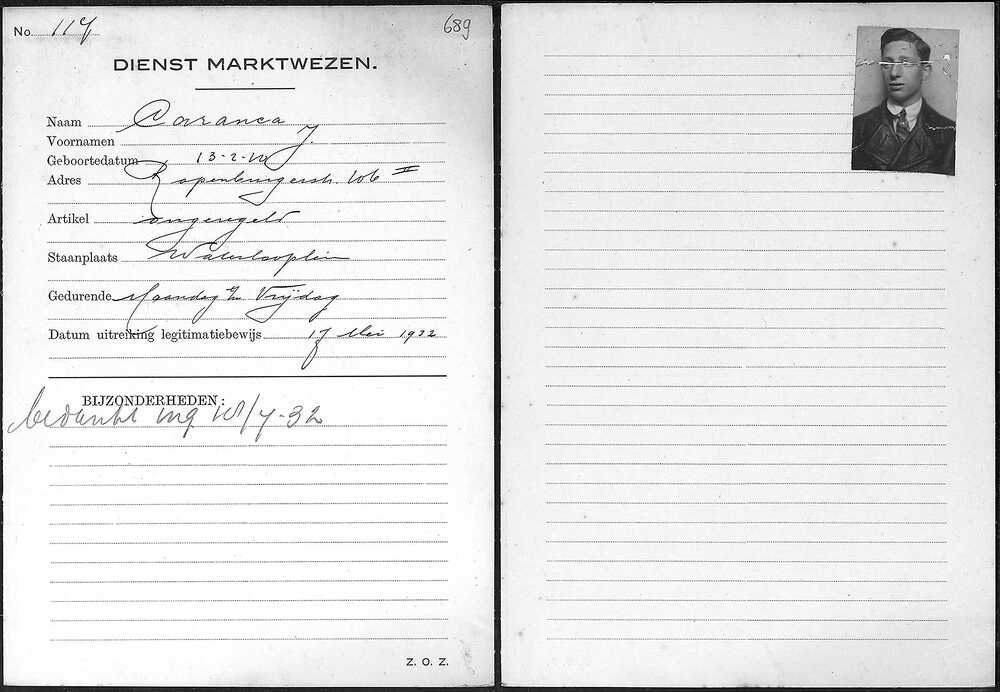 No. 117
689
DIENST MARKTWEZEN.
Naam Caranca
Voornamen J.
Geboortedatum 13-2-10
Adres Rapenburgerstr. 106 II
Artikel ongeregeld
Staanplaats Waterlooplein
Gedurende Maandag t/m Vrijdag
Datum uitreiking legitimatiebewijs 17 Mei 1932
BIJZONDERHEDEN:
bedankt ing 10/7-32
Z. O. Z.